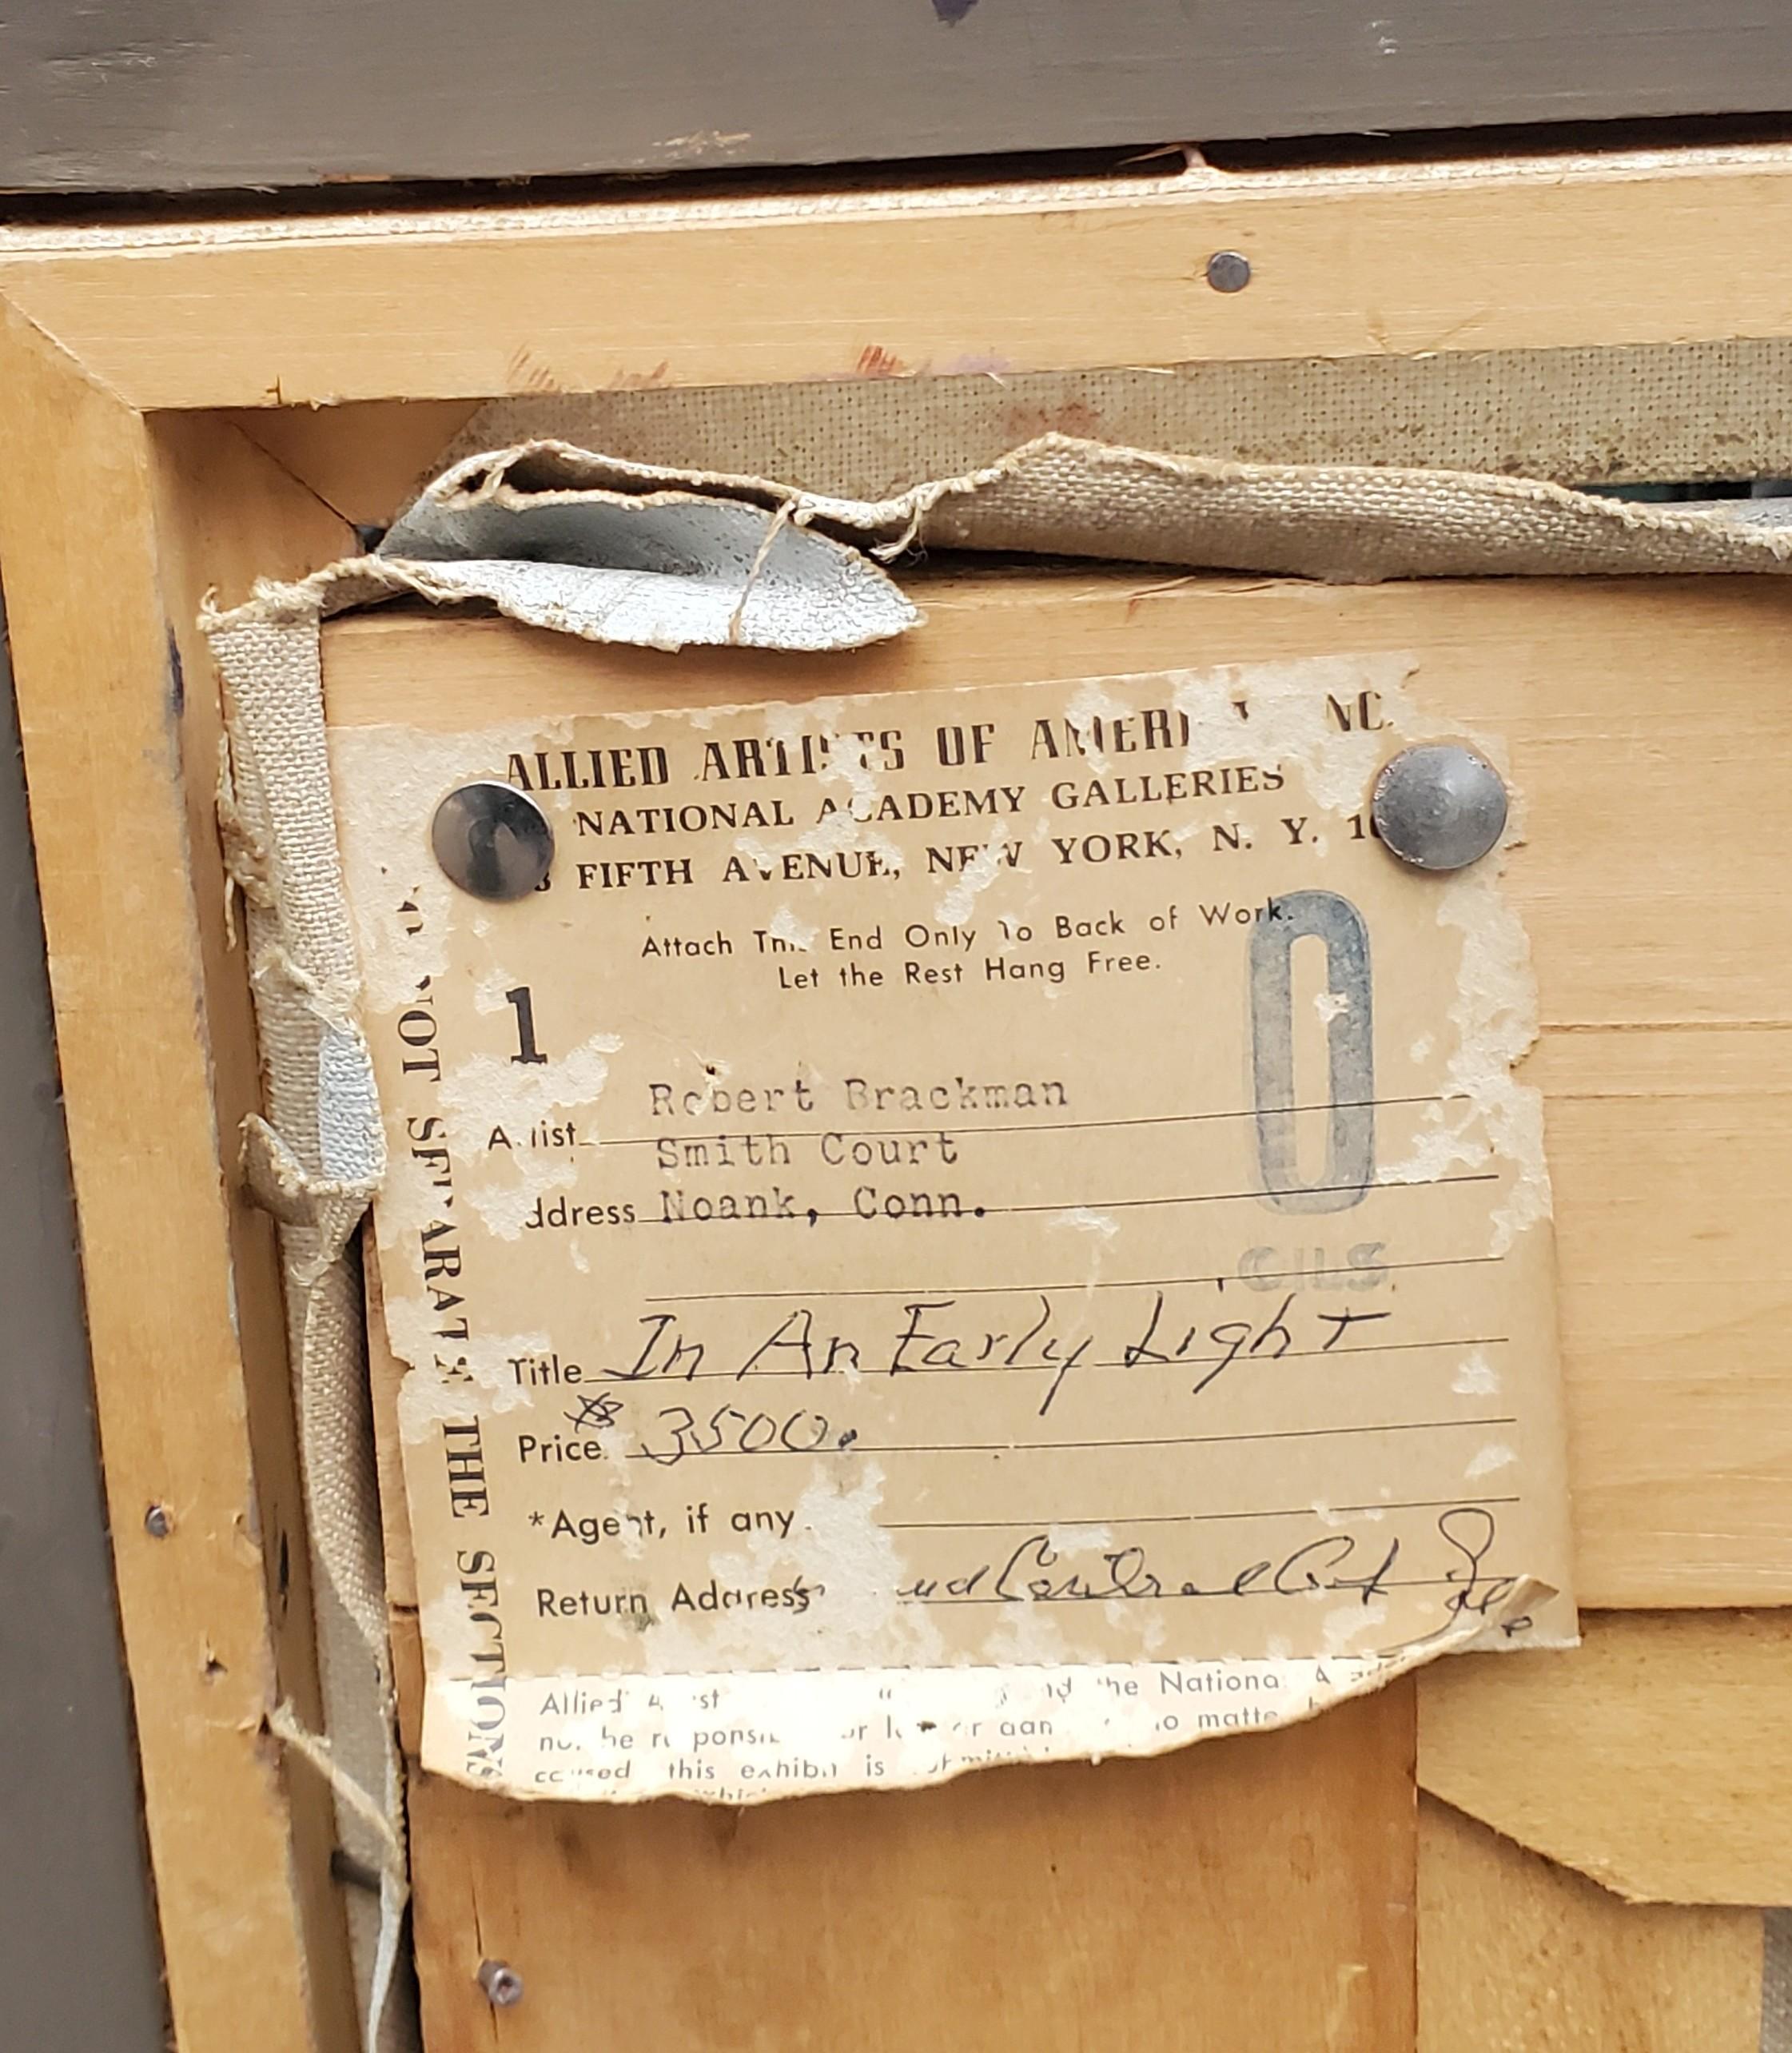 ALLIED ARTISTS OF AMERI NC.
NATIONAL ACADEMY GALLERIES
FIFTH AVENUE, NEW YORK, N. Y. 1
Attach This End Only To Back of Work.
Let the Rest Hang Free.
1
O
Robert Brackman
Artist
Smith Court
ddress Noank, Conn.
OILS
Title In An Early Light
Price $ 3500.
*Agent, if any
Return Address Central
NOT SEPARATE THE SECTIONS
Allied the National
responsi
this exhibit is